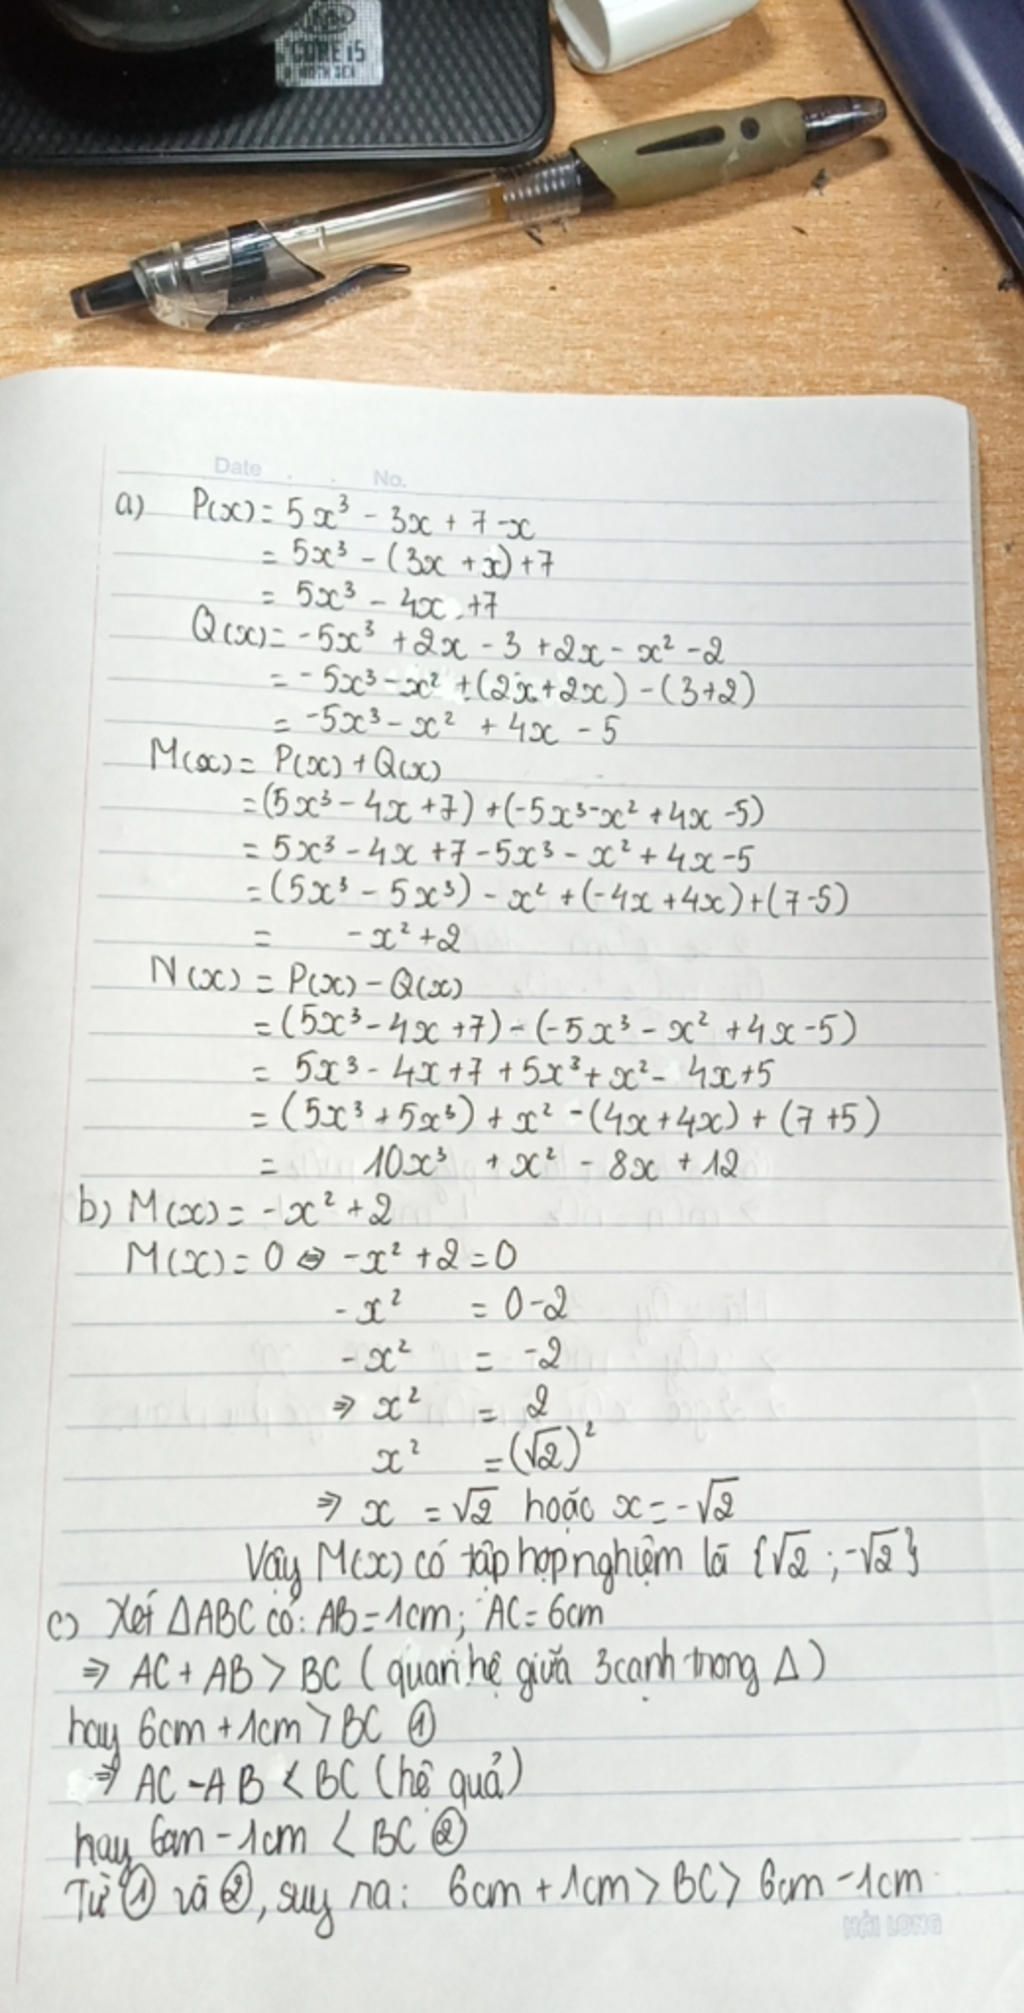 CORE i5
Date . . No.
a) P(x) = 5x³ - 3x + 7 - x
= 5x³ - (3x + x) + 7
= 5x³ - 4x + 7
Q(x) = -5x³ + 2x - 3 + 2x - x² - 2
= -5x³ - x² + (2x + 2x) - (3+2)
= -5x³ - x² + 4x - 5
M(x) = P(x) + Q(x)
= (5x³ - 4x + 7) + (-5x³ - x² + 4x - 5)
= 5x³ - 4x + 7 - 5x³ - x² + 4x - 5
= (5x³ - 5x³) - x² + (-4x + 4x) + (7-5)
= -x² + 2
N(x) = P(x) - Q(x)
= (5x³ - 4x + 7) - (-5x³ - x² + 4x - 5)
= 5x³ - 4x + 7 + 5x³ + x² - 4x + 5
= (5x³ + 5x³) + x² - (4x + 4x) + (7 + 5)
= 10x³ + x² - 8x + 12
b) M(x) = -x² + 2
M(x) = 0 ⇔ -x² + 2 = 0
-x² = 0 - 2
-x² = -2
⇒ x² = 2
x² = (√2)²
⇒ x = √2 hoặc x = -√2
Vậy M(x) có tập hợp nghiệm là {√2 ; -√2}
c) Xét ΔABC có: AB = 1cm; AC = 6cm
⇒ AC + AB > BC (quan hệ giữa 3 cạnh trong Δ)
hay 6cm + 1cm > BC ①
⇒ AC - AB < BC (hệ quả)
hay 6cm - 1cm < BC ②
Từ ① và ②, suy ra: 6cm + 1cm > BC > 6cm - 1cm
HẢI LONG